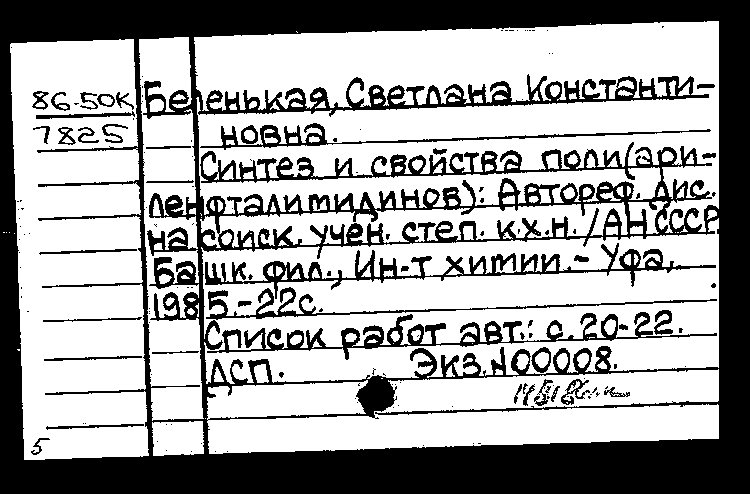 86-50К Беленькая, Светлана Константи-
7825 новна.
Синтез и свойства поли(ари-
ленфталимидинов): Автореф. дис.
на соиск. учен. степ. к.х.н. /АН СССР.
Башк. фил., Ин-т химии.- Уфа,
1985.-22с.
Список работ авт.: с.20-22.
ДСП. Экз.N00008.
5